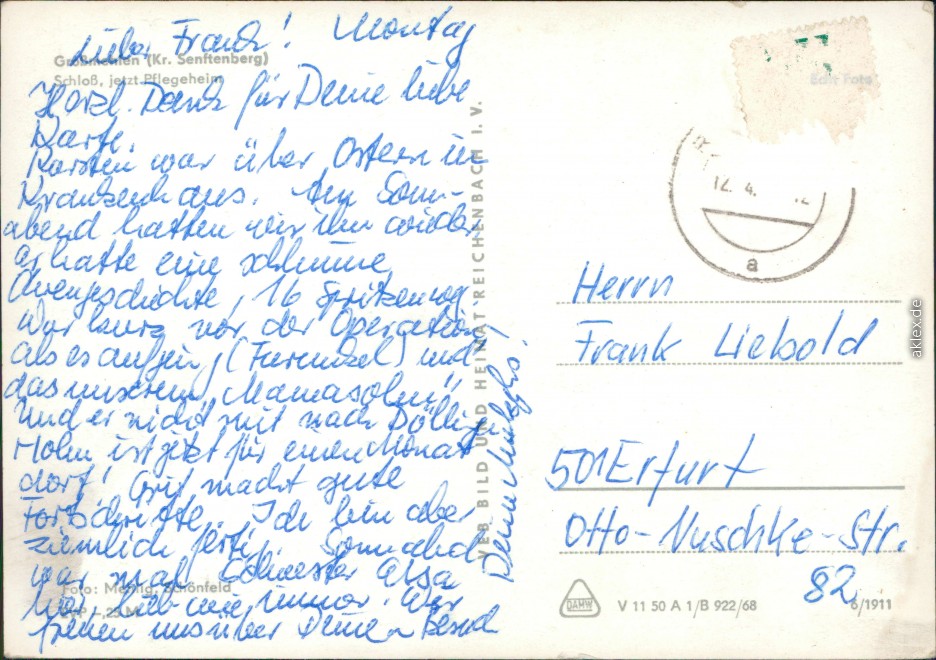 Lieber Frank! Montag
Großkmehlen (Kr. Senftenberg)
Schloß, jetzt Pflegeheim
Herzl. Dank für Deine liebe
Karte.
Karsten war über Ostern im
Krankenhaus. Am Sonn-
abend hatten wir ihn wieder.
Er hatte eine schlimme
Ohrengeschichte, 16 Spritzen
war kurz vor der Operation
als es aufging (Furunkel) und
das unserem Mamasohn!
Und er nicht mit nach
Holm ist jetzt für einen Monat
dort! Grit macht gute
Fortschritte. Ich bin aber
ziemlich fertig. Sonnabend
war mal Schwester Elsa
hier, half mir immer. Wir
freuen uns über Deinen Besuch
Foto: Schönfeld
VEB BILD UND HEIMAT REICHENBACH I. V.
Echt Foto
12. 4.
a
Herrn
Frank Liebold
501 Erfurt
Otto-Nuschke-Str.
82
DAMW
V 11 50 A 1/B 922/68
6/1911
aklex.de